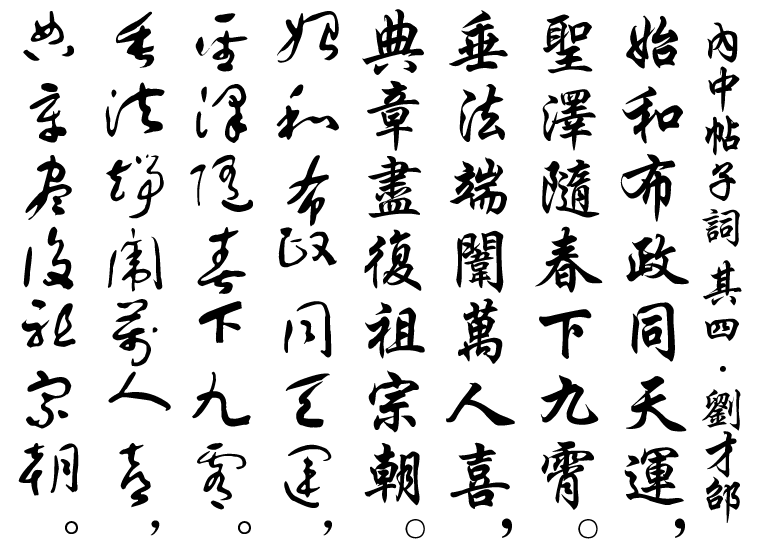 內中帖子詞 其四·劉才邵
始和布政同天運，
聖澤隨春下九霄。
垂法端闈萬人喜，
典章盡復祖宗朝。
始和布政同天運，
聖澤隨春下九霄。
垂法端闈萬人喜，
典章盡復祖宗朝。